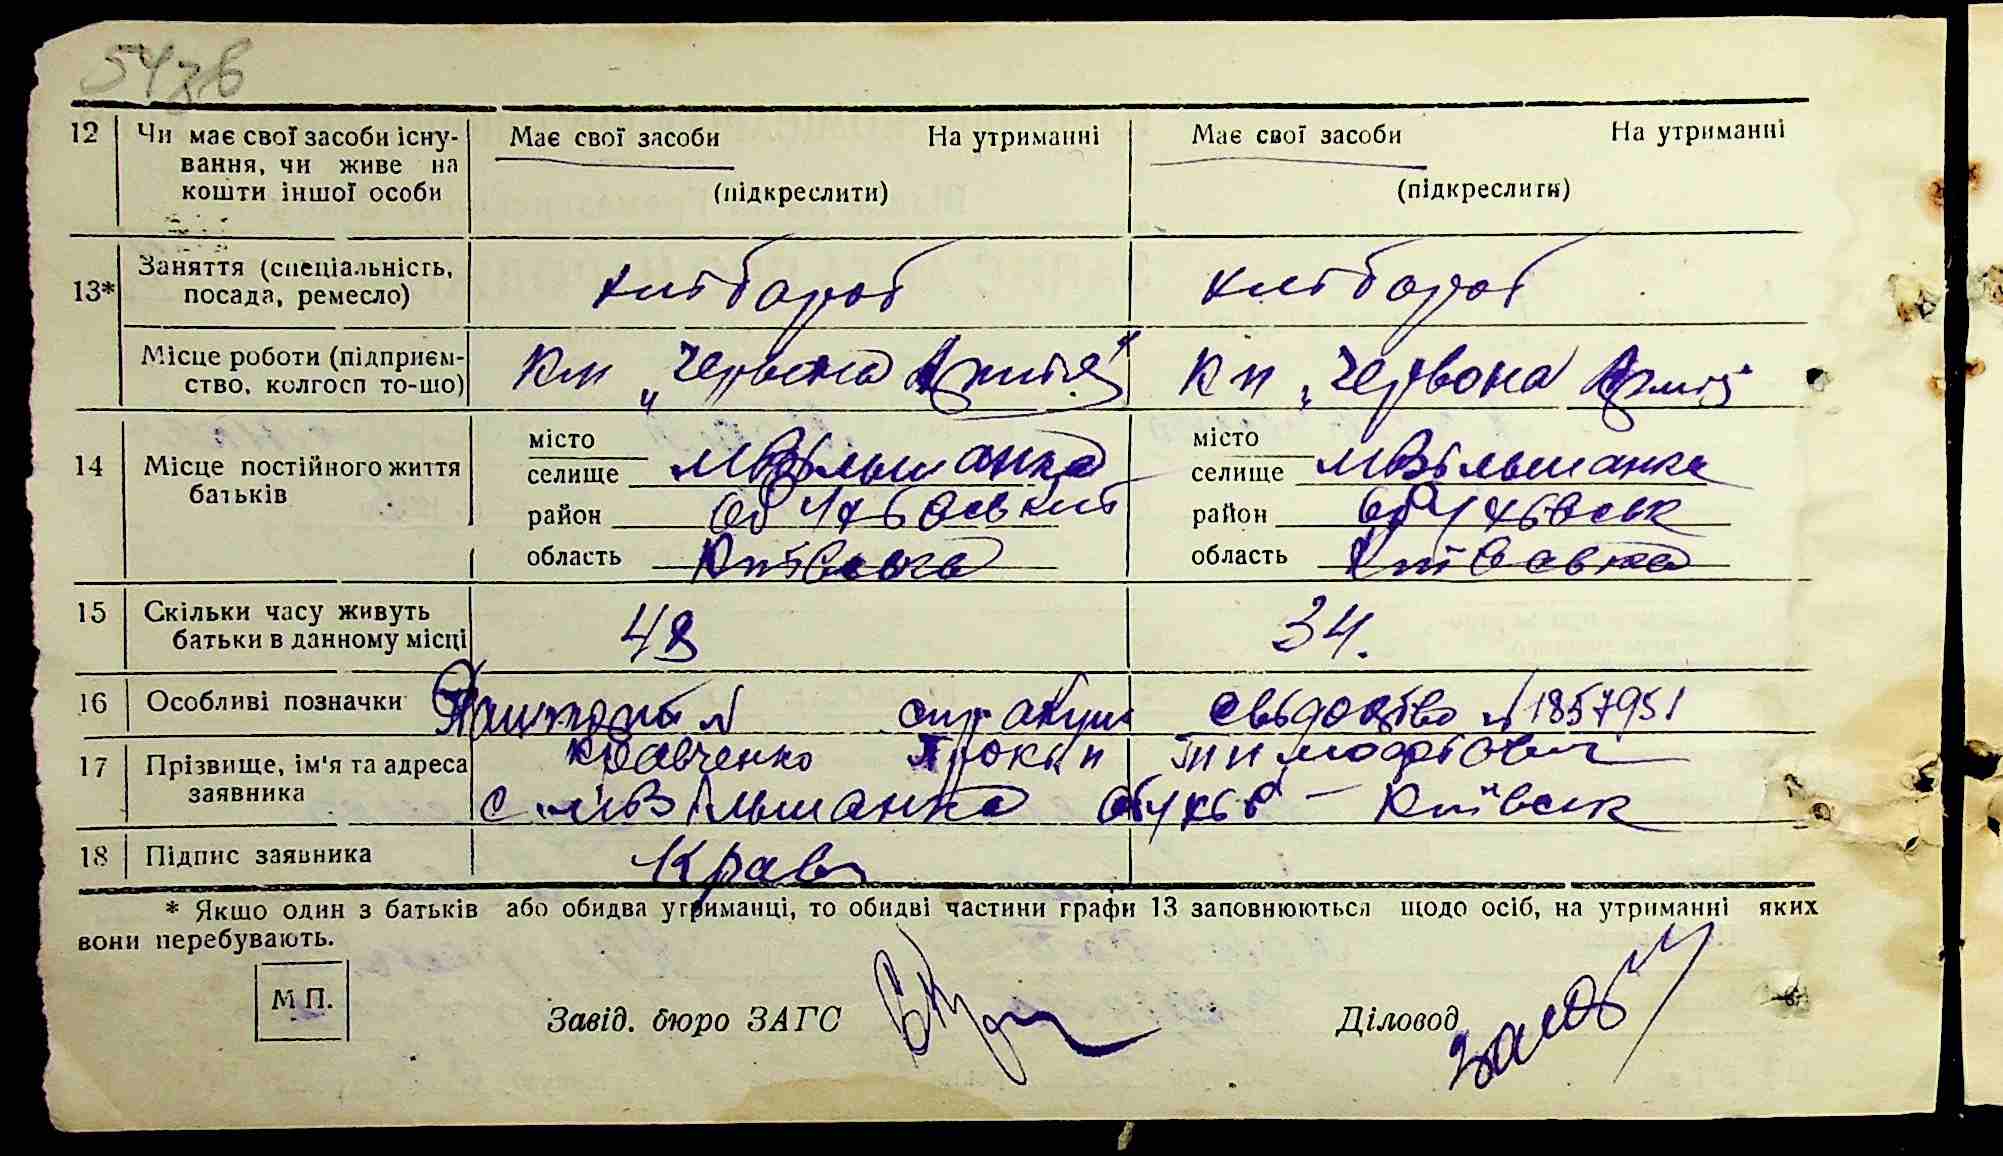 54зв
12 Чи має свої засоби існування, чи живе на кошти іншої особи
Має свої засоби На утриманні
(підкреслити)
Має свої засоби На утриманні
(підкреслити)
13* Заняття (спеціальність, посада, ремесло)
хлібороб
хлібороб
Місце роботи (підприємство, колгосп то-що)
Кп „Червона Армія"
Кп „Червона Армія"
14 Місце постійного життя батьків
місто
селище мВільшанка
район Обухівський
область Київська
місто
селище мВільшанка
район Обухівськ
область Київська
15 Скільки часу живуть батьки в данному місці
48
34.
16 Особливі позначки
свідоцтво № 1857951
17 Прізвище, ім'я та адреса заявника
Кравченко Прокіп Тимофійович
с. мВільшанка Обухів – Київськ
18 Підпис заявника
Крав
* Якщо один з батьків або обидва утриманці, то обидві частини графи 13 заповнюються щодо осіб, на утриманні яких
вони перебувають.
М П.
Завід. бюро ЗАГС
Діловод